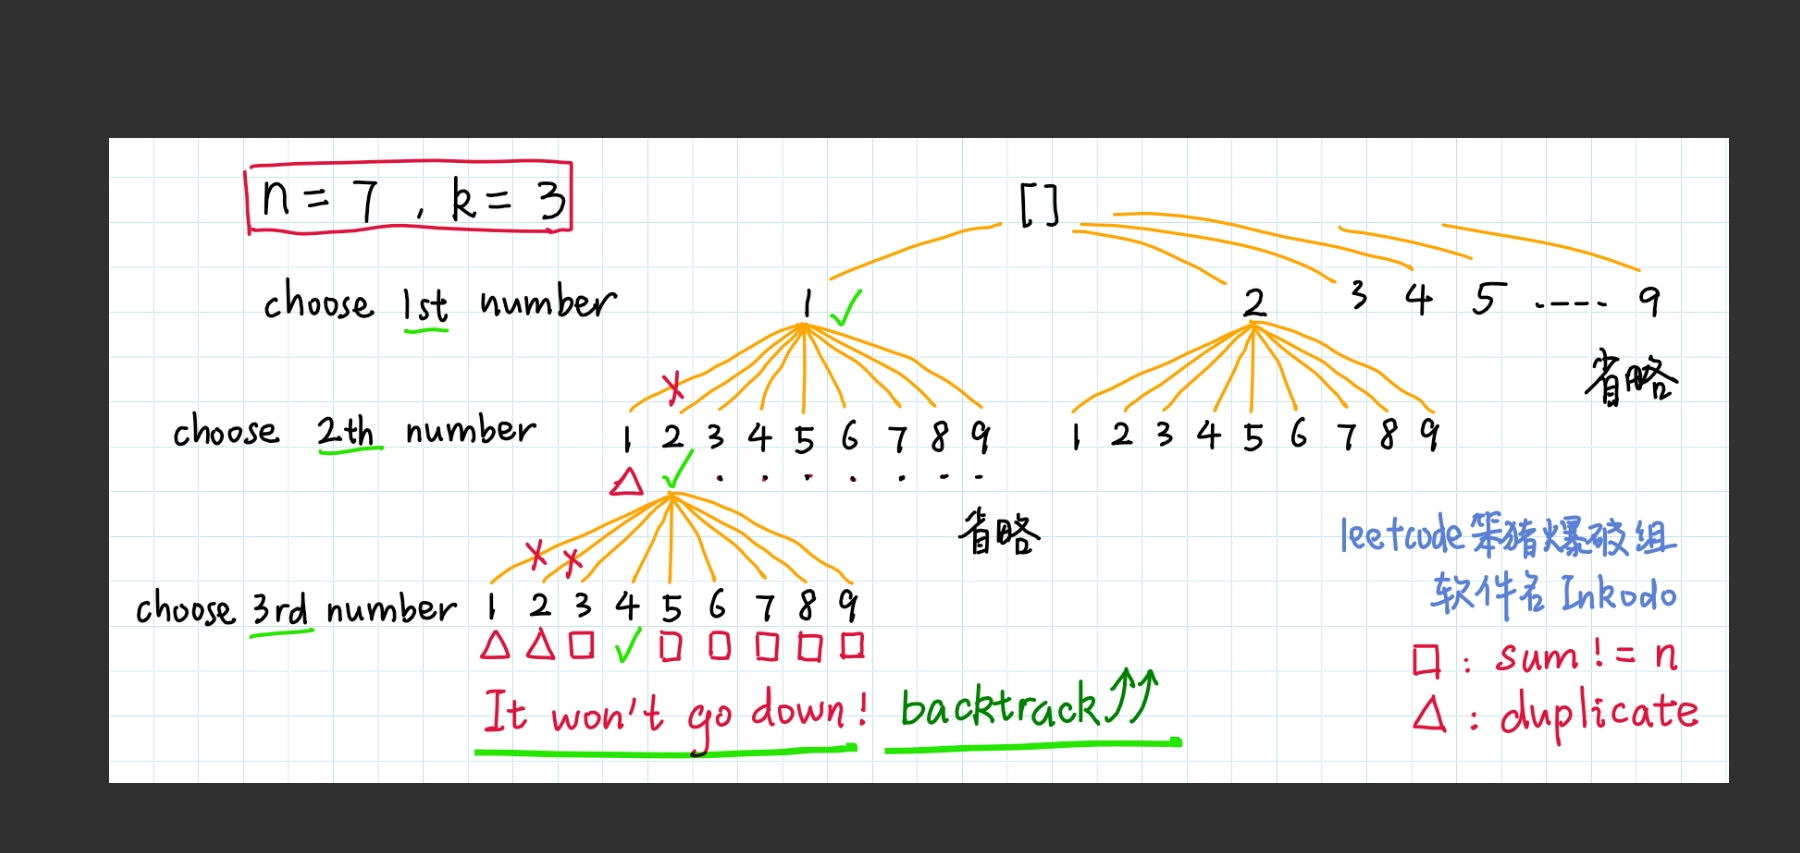 n = 7 , k = 3
[ ]
choose 1st number
1 ✓ 2 3 4 5 ---- 9
省略
choose 2th number
1 2 3 4 5 6 7 8 9
1 2 3 4 5 6 7 8 9
省略
choose 3rd number
1 2 3 4 5 6 7 8 9
It won't go down! backtrack
leetcode 笨猪爆破组
软件名 Inkodo
□ : sum != n
△ : duplicate